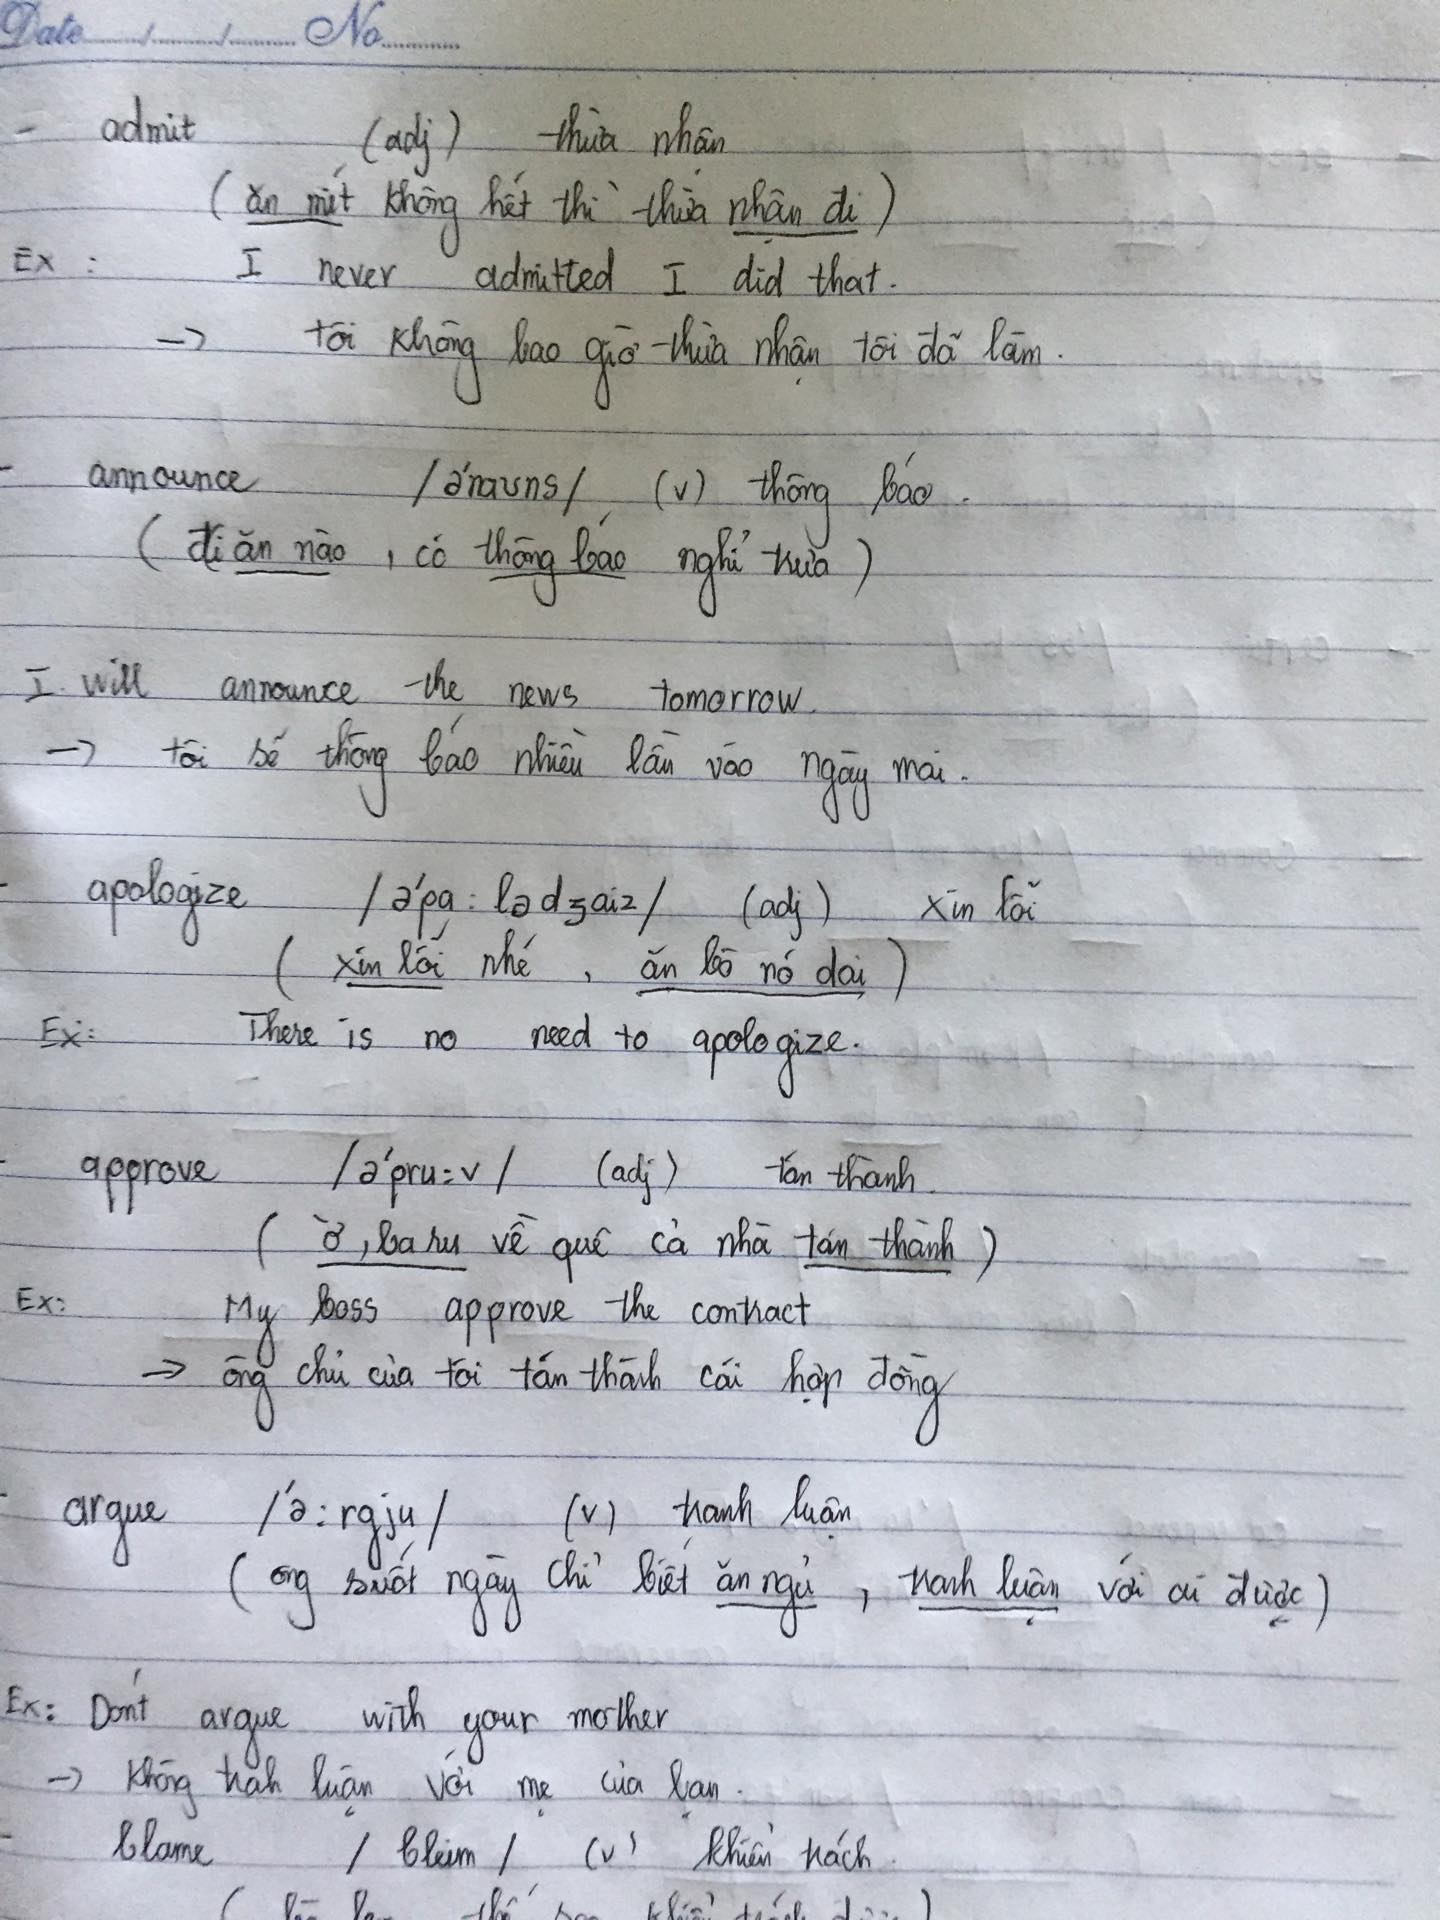 Date...../....../........ No...........
- admit (adj) thừa nhận
( ăn mít không hết thì thừa nhận đi )
Ex : I never admitted I did that.
-> tôi không bao giờ thừa nhận tôi đã làm.
- announce /ə'naʊns/ (v) thông báo.
( đi ăn nào, có thông báo nghỉ trưa )
I will announce the news tomorrow.
-> tôi sẽ thông báo nhiều lần vào ngày mai.
- apologize /ə'pɑ:lədʒaiz/ (adj) xin lỗi
( xin lỗi nhé, ăn bò nó dai )
Ex: There is no need to apologize.
- approve /ə'pru:v/ (adj) tán thành.
( ờ, ba ru về quê cả nhà tán thành )
Ex: My boss approve the contract
-> ông chủ của tôi tán thành cái hợp đồng
- argue /'ə:rgju/ (v) tranh luận
( ông suốt ngày chỉ biết ăn ngủ, tranh luận với ai được )
Ex: Don't argue with your mother
-> Không trah luận với mẹ của bạn.
- blame / bleim / (v) khiển trách.
khiển trách được )